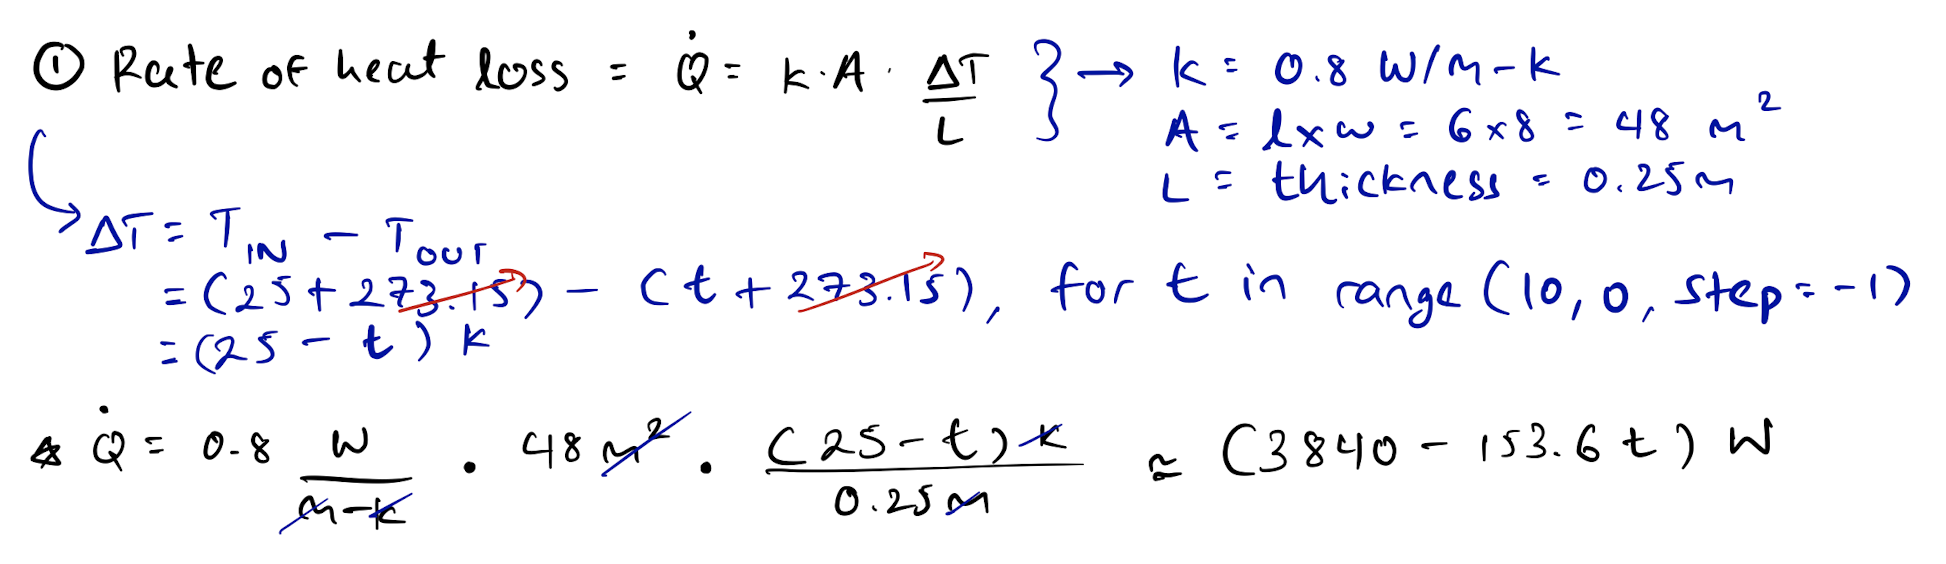 ① Rate of heat loss = Q̇ = k·A·ΔT/L } → k = 0.8 W/m-k
A = l×w = 6×8 = 48 m²
L = thickness = 0.25m
ΔT = T_IN - T_OUT
= (25 + 273.15) - (t + 273.15), for t in range (10, 0, step = -1)
= (25 - t) k
Q̇ = 0.8 W/m-k · 48 m² · (25-t) k/0.25m ≈ (3840 - 153.6 t) W